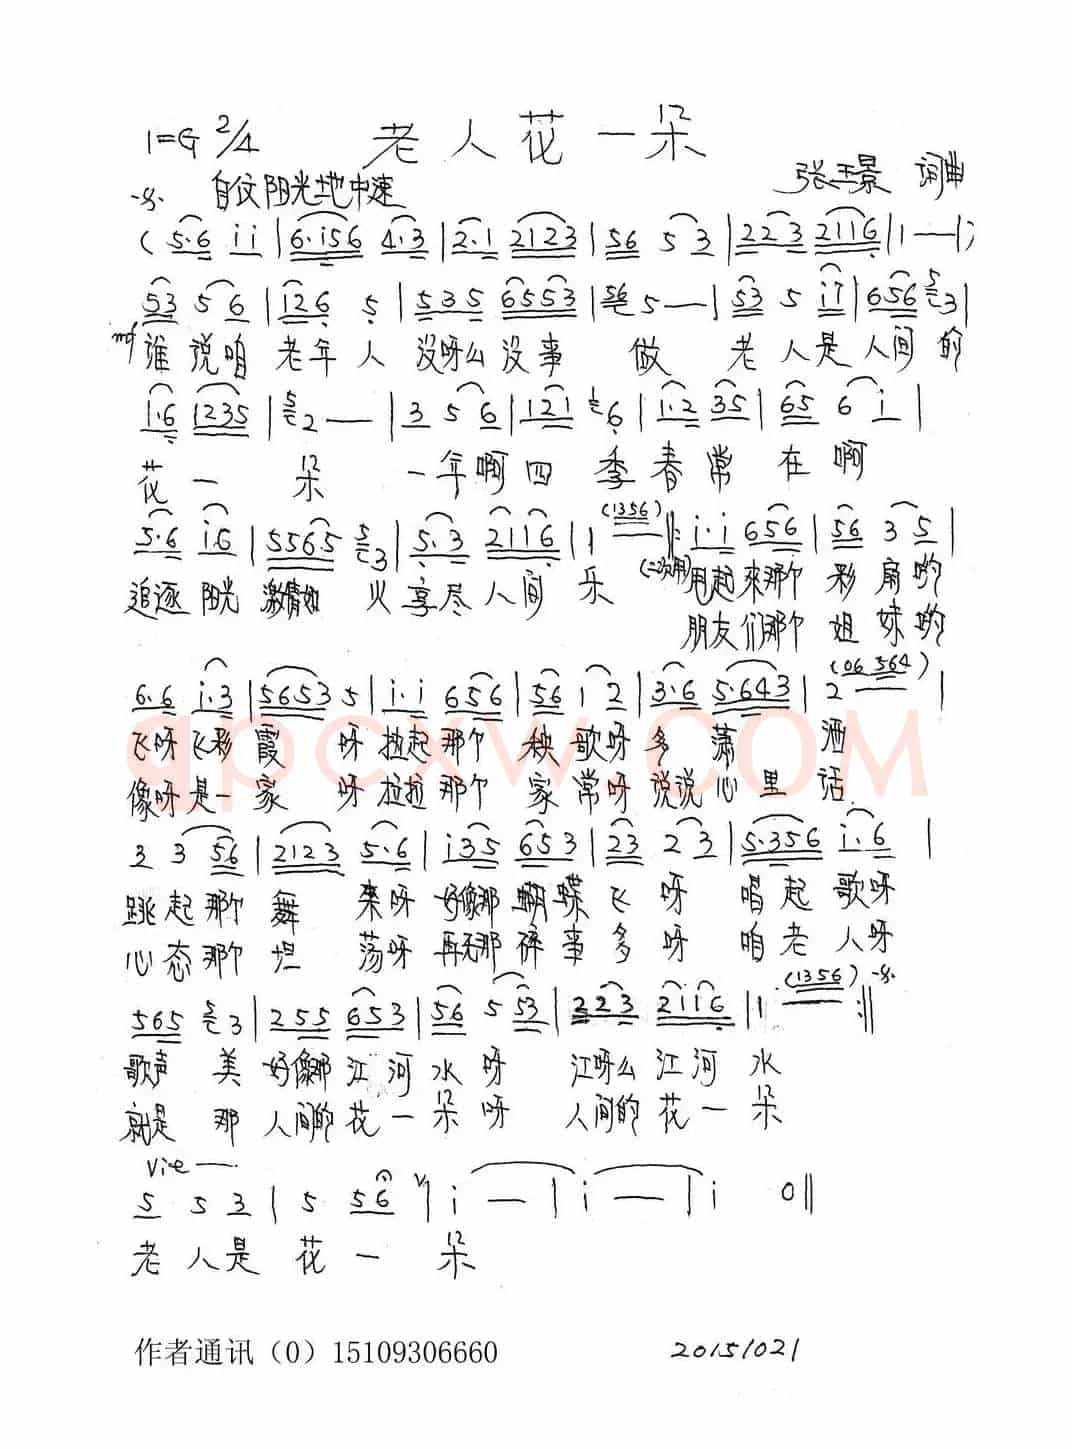 1=G 2/4 老人花一朵
自位阳光地中速 张玉景 词曲
( 5·6 i i | 6·i56 4·3 | 2·1 2123 | 56 5 3 | 223 2116 | 1 — | )
53 5 6 | 126 5 | 535 6553 | 56 5 — | 53 5 i7 | 656 5 3 |
mf 谁说咱老年人没呀么没事做老人是人间的
1·6 1235 | 5 2 — | 3 5 6 | 121 6 | 1·2 35 | 65 6 i |
花一朵一年啊四季春常在啊
5·6 i6 | 5565 5 3 | 5·3 2116 | 1 (1356) :| i·i 656 | 56 3 5 |
追逐阳光激情如火享尽人间乐 (二次用) 甩起来那个彩扇哟
朋友们那个姐妹哟
6·6 i·3 | 5653 5 | i·i 656 | 56 1 2 | 3·6 5·643 | 2 — (06 564) |
飞呀飞彩霞呀拉起那个秧歌呀多潇洒
像呀是一家呀拉拉那个家常呀说说心里话
3 3 56 | 2123 5·6 | i35 653 | 23 2 3 | 5·356 i·6 |
跳起那个舞来呀好像那蝴蝶飞呀唱起歌呀
心态那个坦荡呀再无那碎事多呀咱老人呀
565 5 3 | 255 653 | 56 5 53 | 223 2116 | 1 — (1356) :||
歌声美好像那江河水呀江呀么江河水
就是那人间的花一朵呀人间的花一朵
vie —
5 5 3 | 5 56 v | i — | i — | i 0 ||
老人是花一朵
作者通讯（0）15109306660 20151021
qpcxw.COM